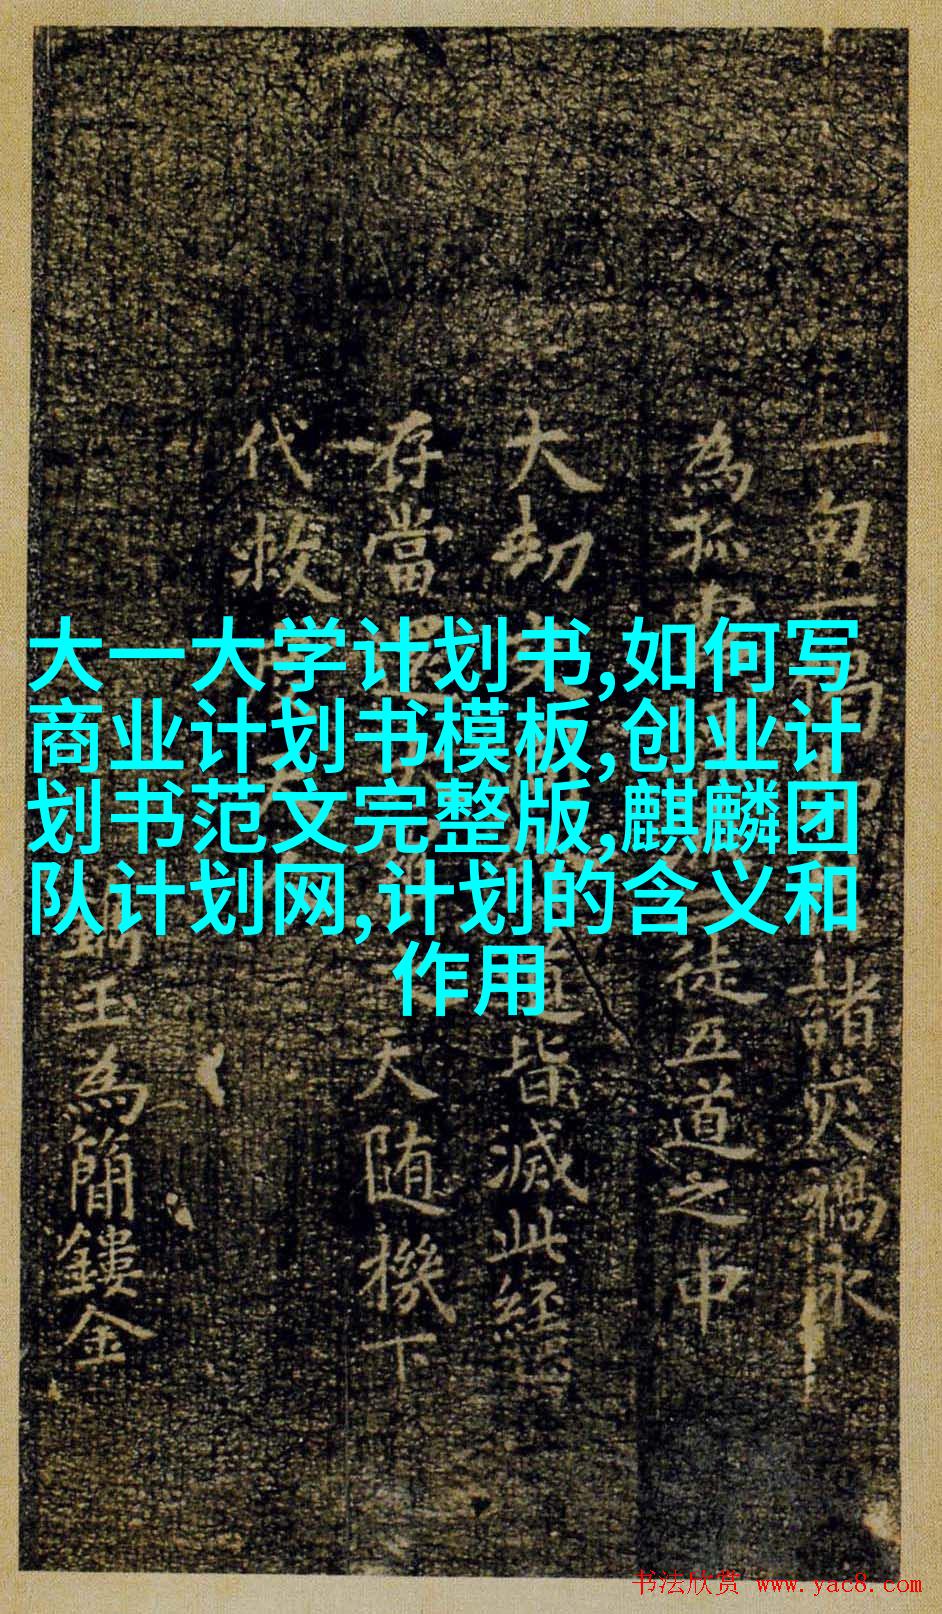 大一大学计划书,如何写
商业计划书模板,创业计
划书范文完整版,麒麟团
队计划网,计划的含义和
作用
一句一偈
諸災禍永
為孤
徒五道之中
大劫
皆滅此經
存當
天隨機下
代救
玉為簡鏤金
书法欣赏 www.yac8.com